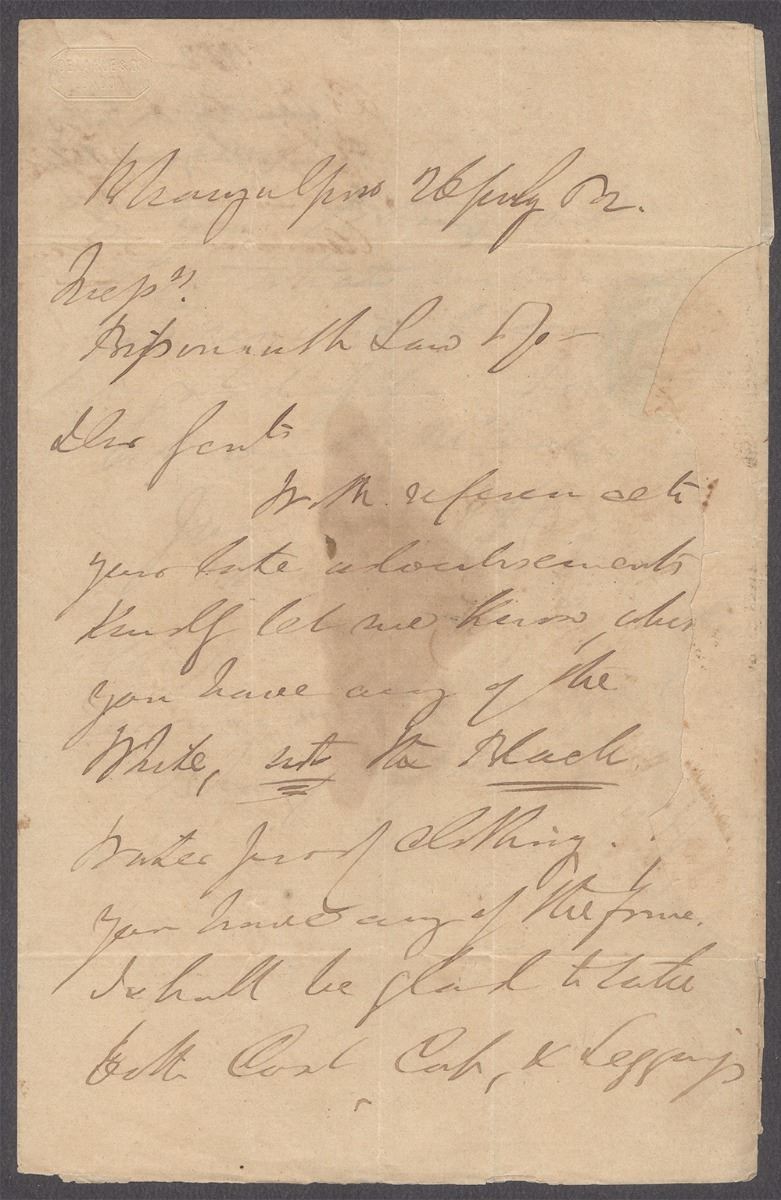 Bhaugulpore 26 July 52.
Messrs.
Bissonauth Law & Co
Dear Gents
With reference to
your late advertisements
Kindly let me know, when
you have any of the
White, not the Black
Water proof clothing.
you have any of the
I shall be glad to take
both Coat Cap, & Leggings